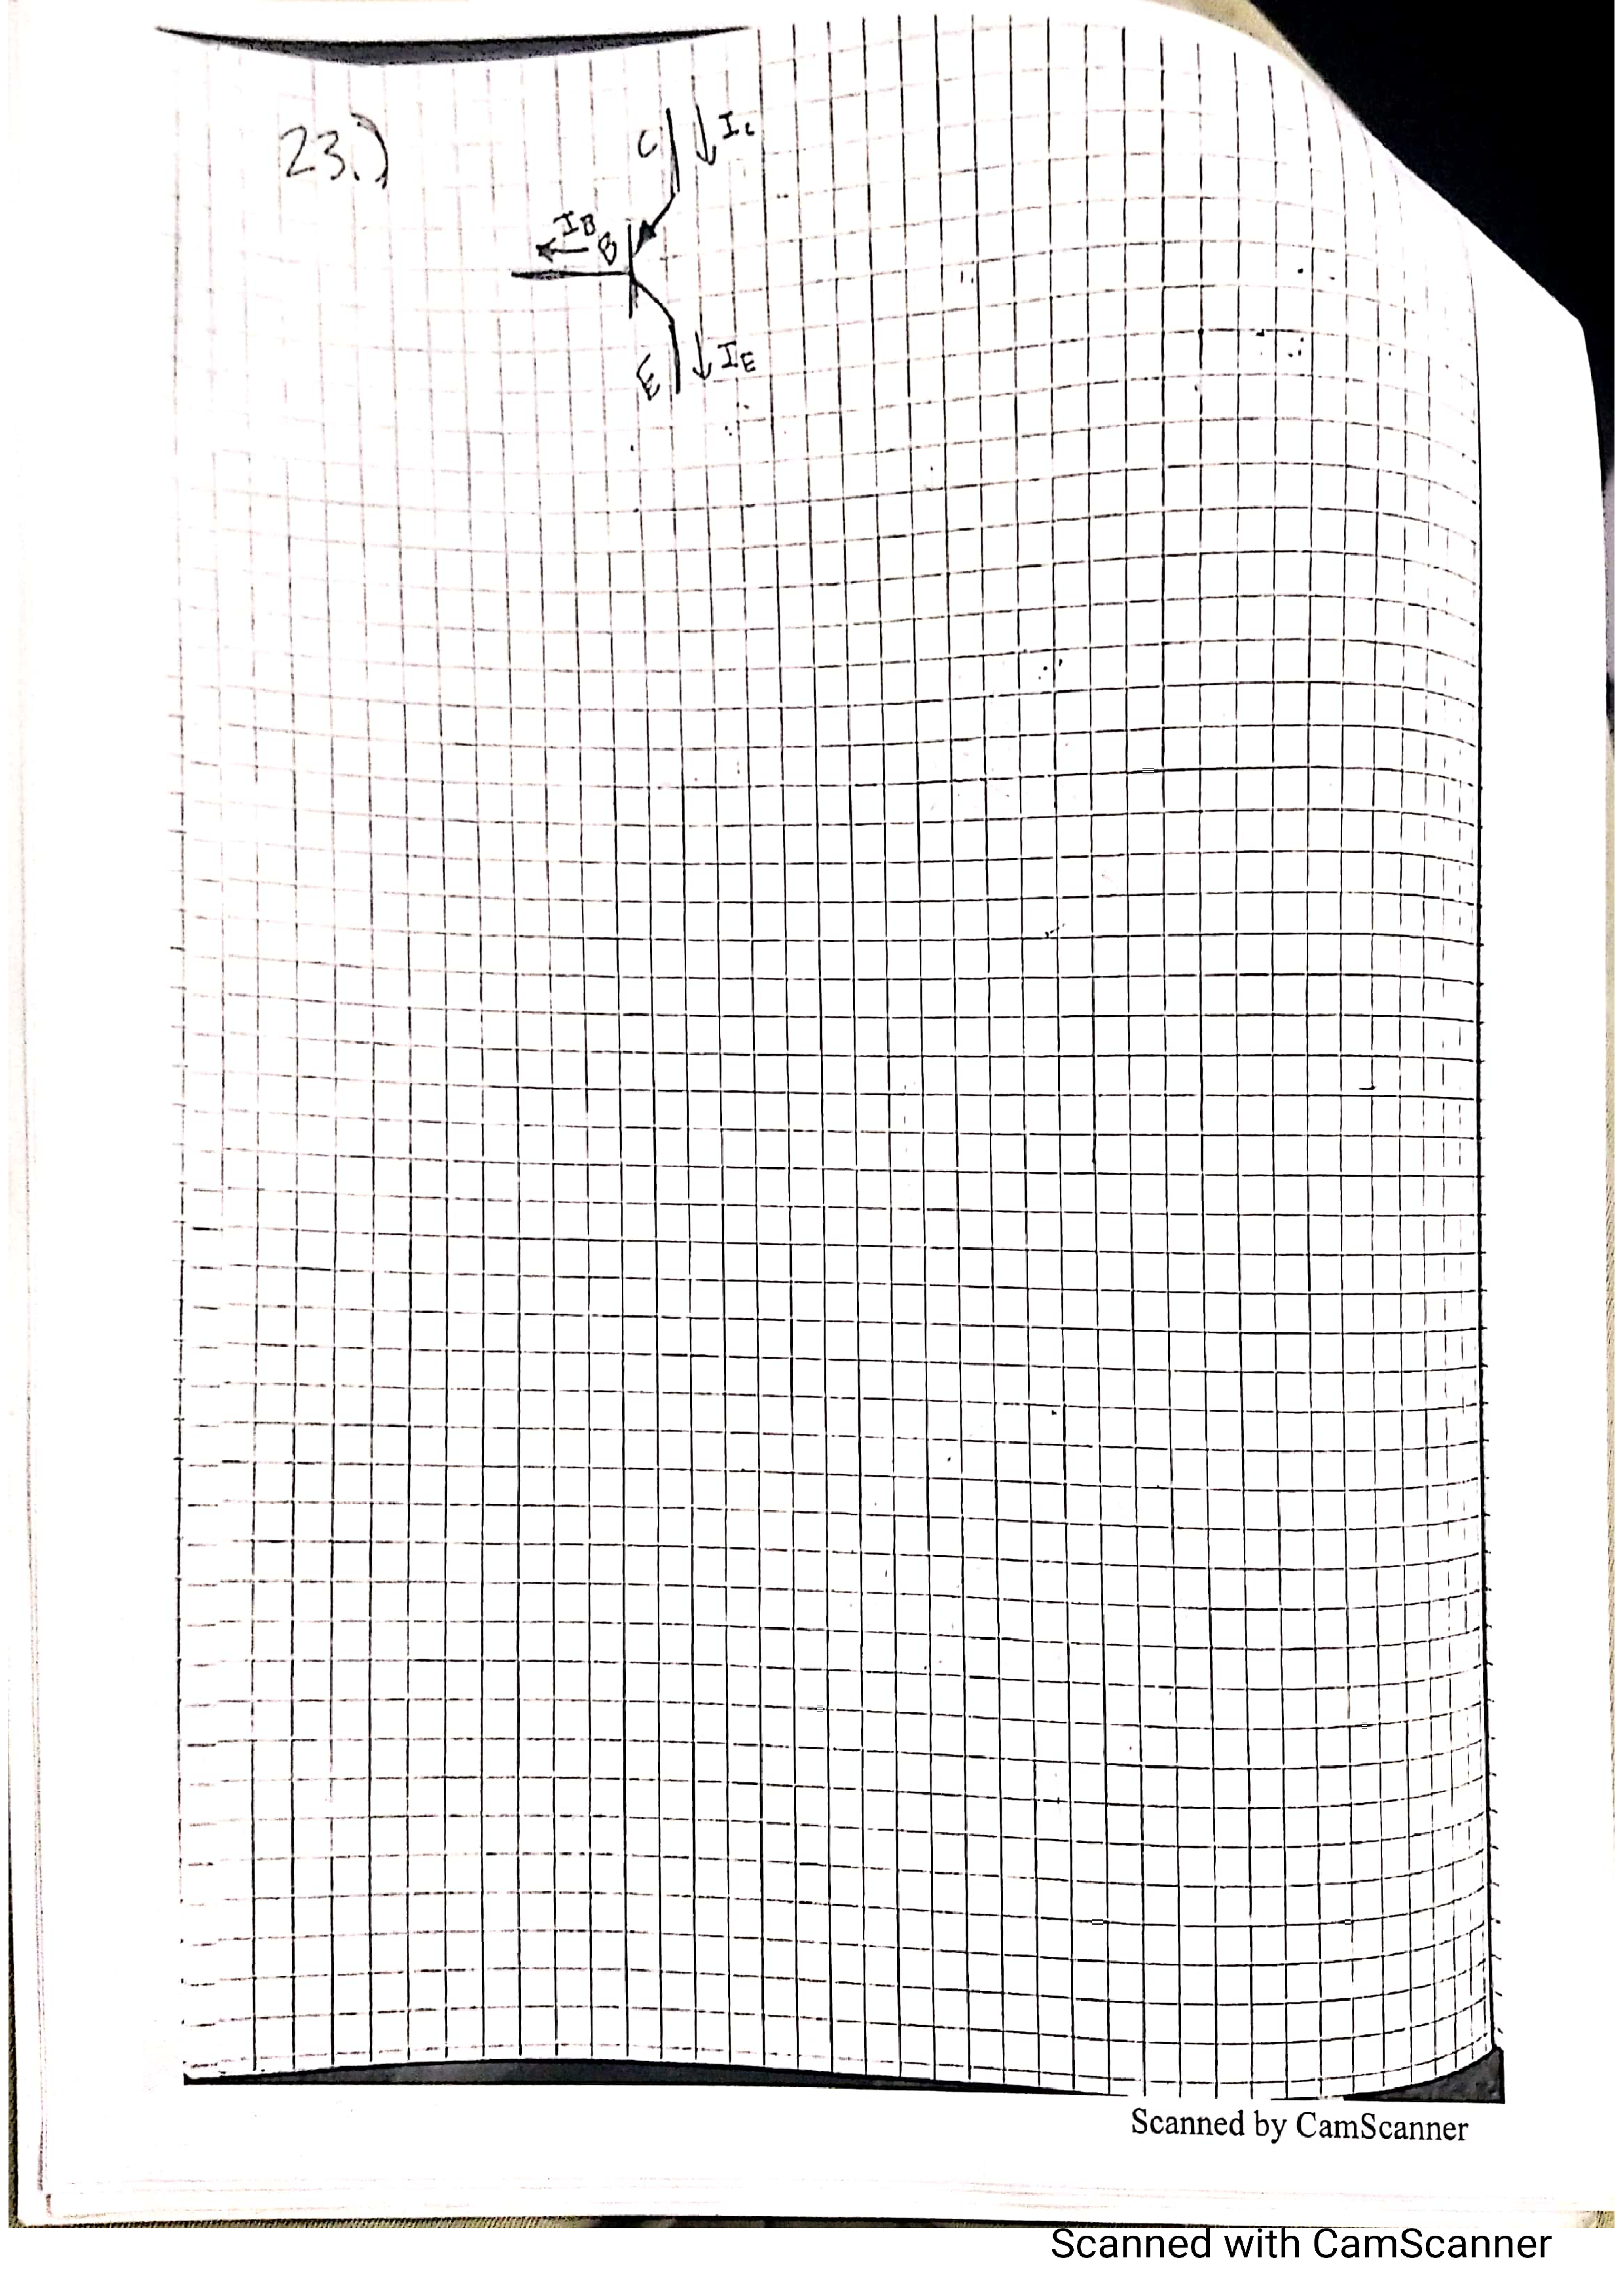 23.)
C
I_C
I_B
B
E
I_E
Scanned by CamScanner
Scanned with CamScanner